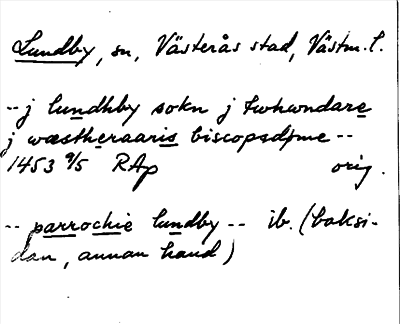 Lundby, sn, Västerås stad, Västm. l.
-- j lundhby sokn j twhwndare
j wæstheraaris biscopsdøme --
1453 9/5 RAp orig.
-- parrochie lundby -- ib. (baksi-
dan, annan hand)